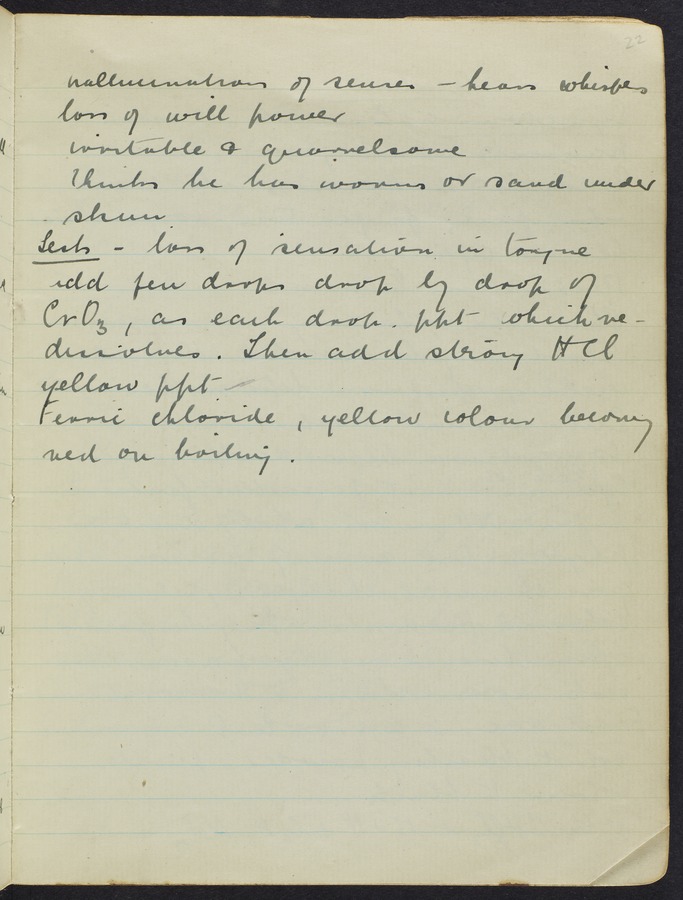 22
hallucinations of senses - hears whispers
loss of will power
irritable & quarrelsome
thinks he has worms or sand under
skin
Tests - loss of sensation in tongue
add few drops drop by drop of
CrO3, as each drop. ppt which re-
dissolves. Then add strong HCl
yellow ppt
Ferric chloride, yellow colour becoming
red on boiling.